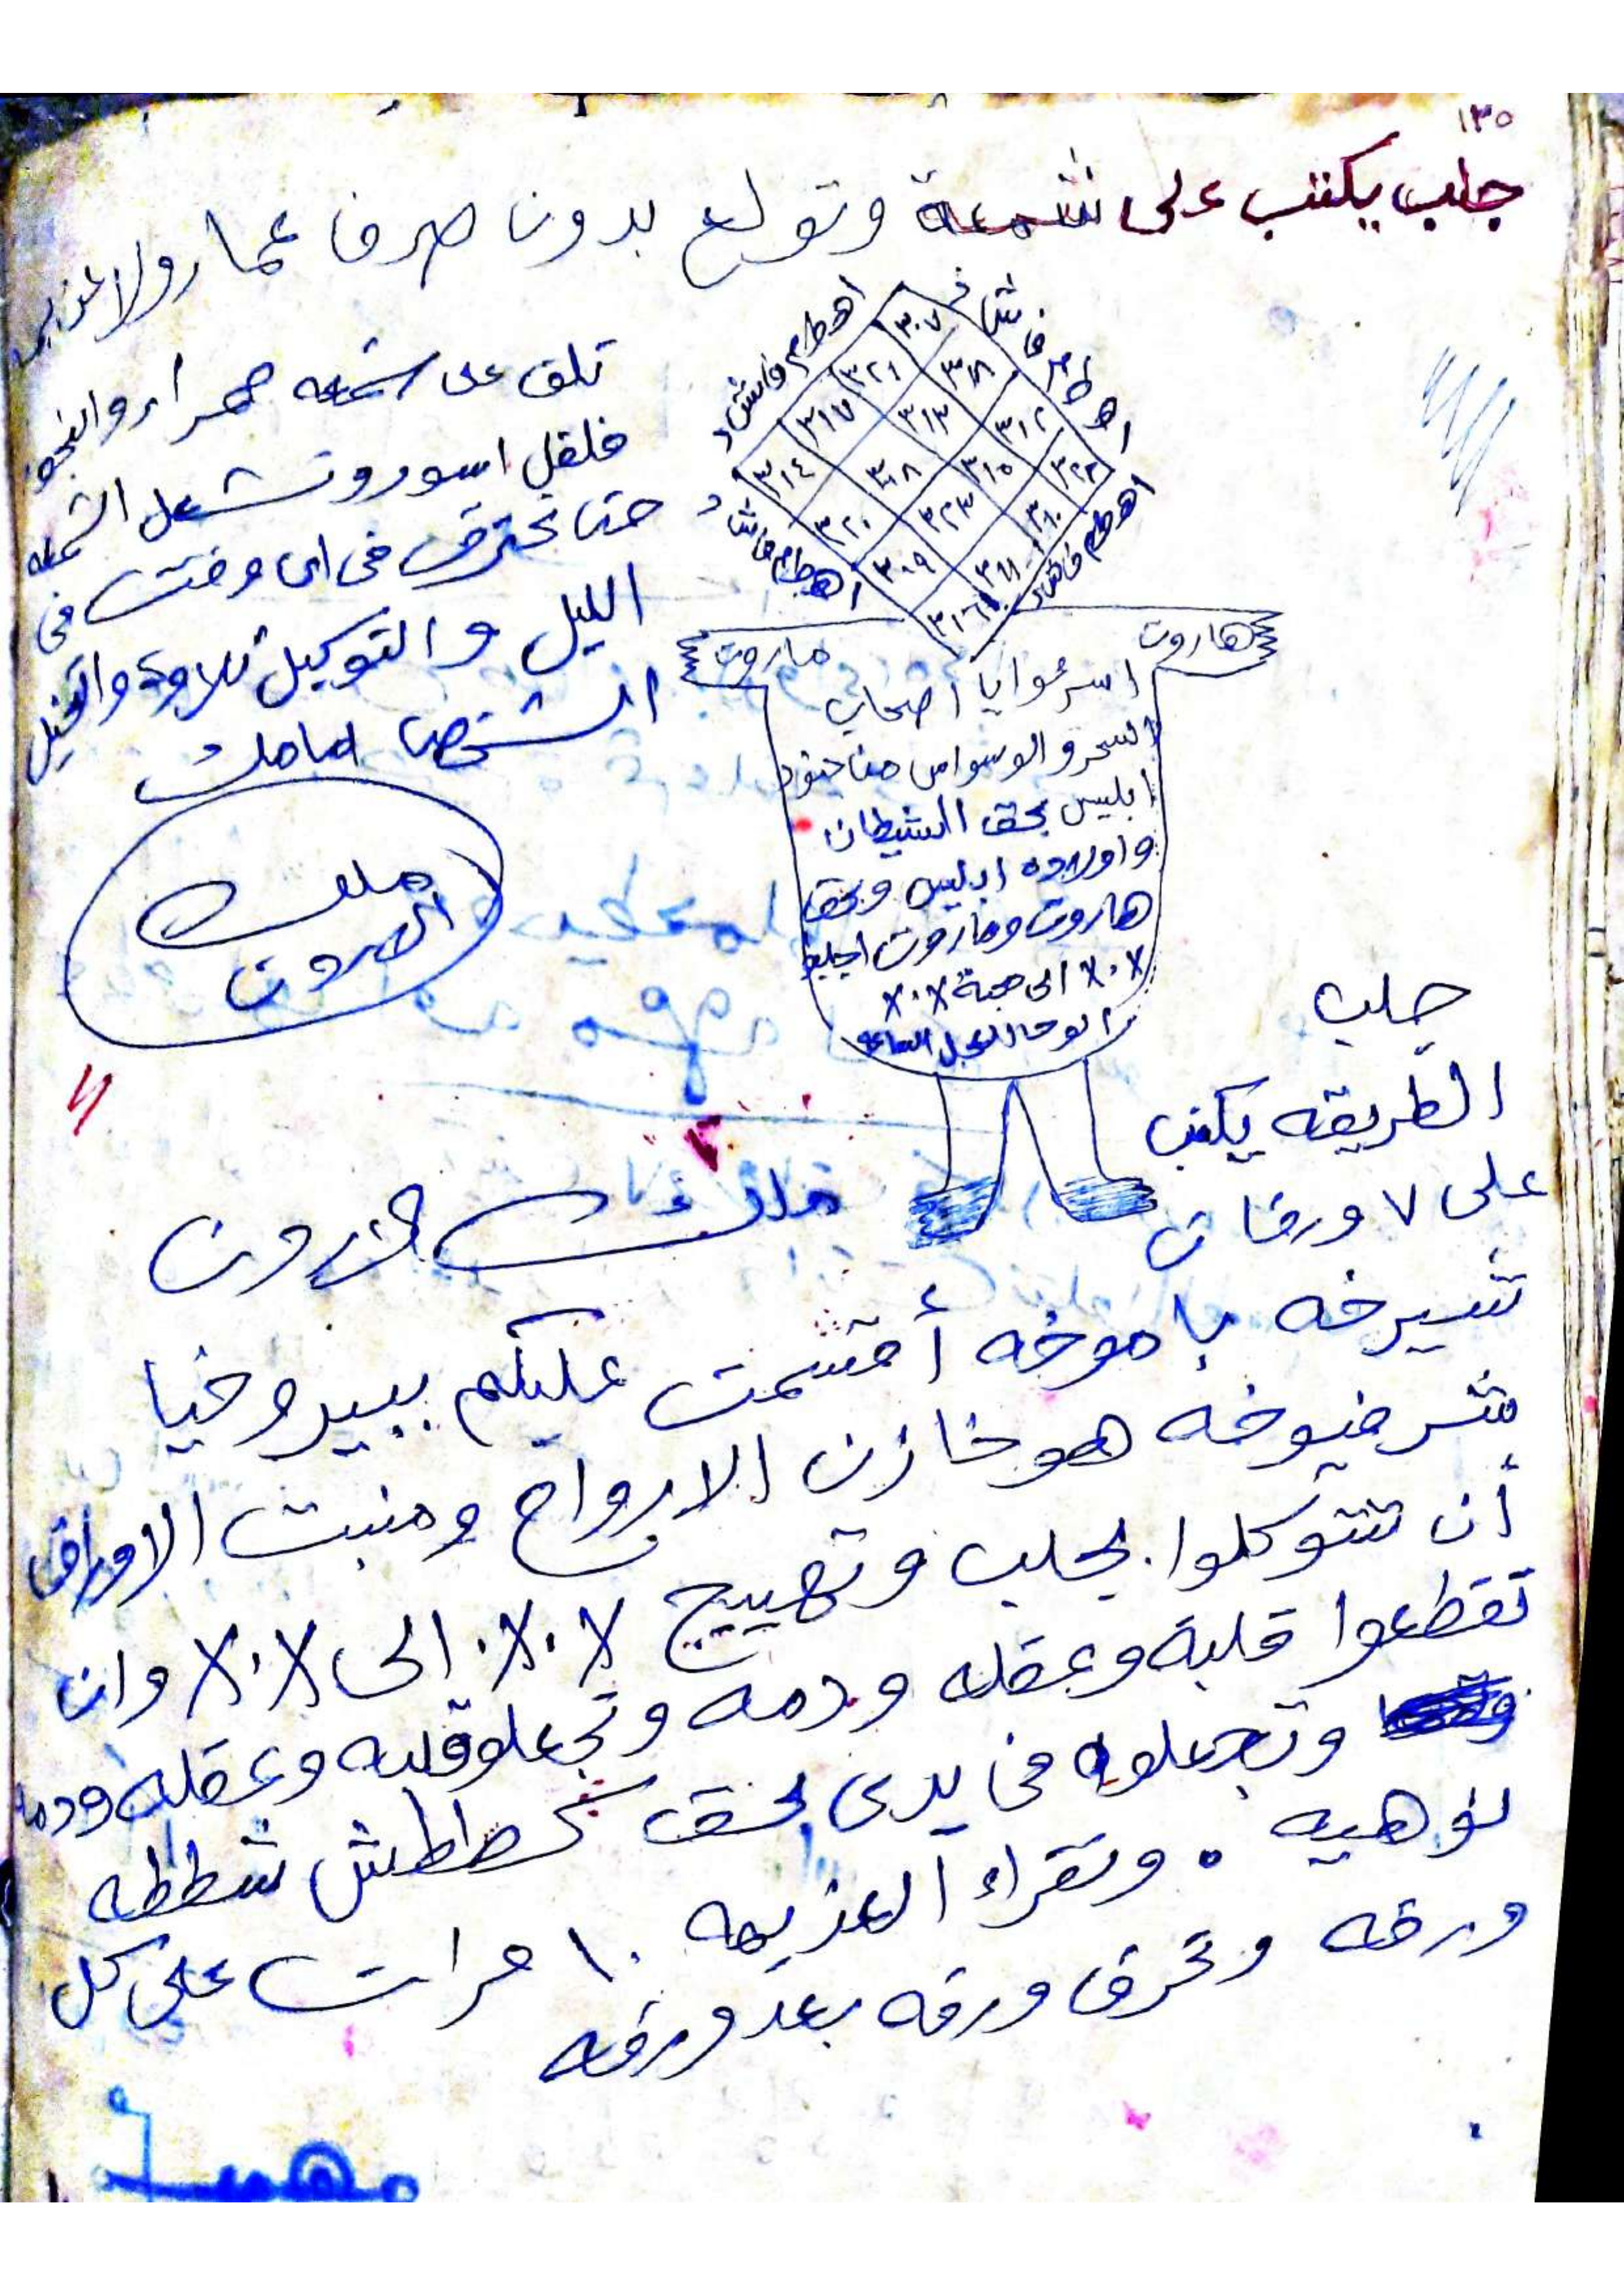 ١٣٥
جلب يكتب على شمعة وتولع بدون صرف عمار ولا عزيمه
تلف على شمعه حمرا والبخور
فلفل اسود وتشعل الشمعه
حتى تحترق في اى وقت في
الليل والتوكيل تلاوة واتخيل
الشخص امامك
ملك
الهرون
اهطم فشذ
اهطم فشذ
اهطم فشذ
اهطم فشذ
٣٠٧
٣٢١ ٣١٨
٣١٧ ٣١٣ ٣١٢
٣١٤ ٣٠٨ ٣١٥ ٣٢٢
٣٢٠ ٣٢٣ ٣١٠
٣٠٩ ٣١١
٣١٦
هاروت
ماروت
اسرعوا يا اصحاب
السحر والوسواس من جنود
ابليس بحق الشيطان
واولاده ابليس وبحق
هاروت وماروت اجلبوا
X.X الى محبة X.X
الوحا العجل الساعه
جلب
الطريقه يكتب
على ٧ ورقات
تشيرخه باموخه أقسمت عليكم ببيروخيا
شرخيوخه هو خازن الارواح ومنبت الاوراق
أن تتوكلوا بجلب وتهييج X.X. الى X.X وان
تقطعوا قلبة وعقله ودمه وتجعلو قلبه وعقله ودمه
وتجعلوه في يدى بحق كططش شططه
نوهيه . وتقراء العزيمه ١٠ مرات على كل
ورقه وتحرق ورقه بعد ورقه